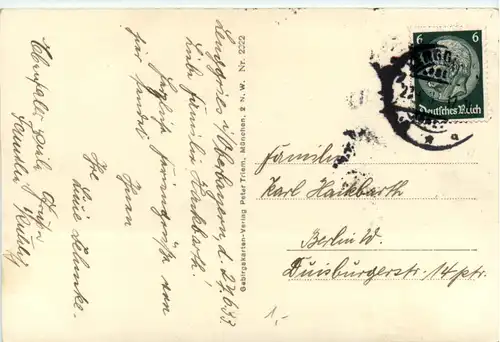 Lenggries i/Oberbayern, d. 27.6.33
Liebe Familie Hackbarth!
Herzliche Feriengrüße von
hier sendet
Ihnen
Ihre
Ebenfalls viele Grüße
Familie
Gebirgskarten-Verlag Peter Triem, München, 2 N.W. Nr. 2022
6 6
Deutsches Reich
Familie
Karl Hackbarth
Berlin W.
Duisburgerstr. 14 ptr.
1,-